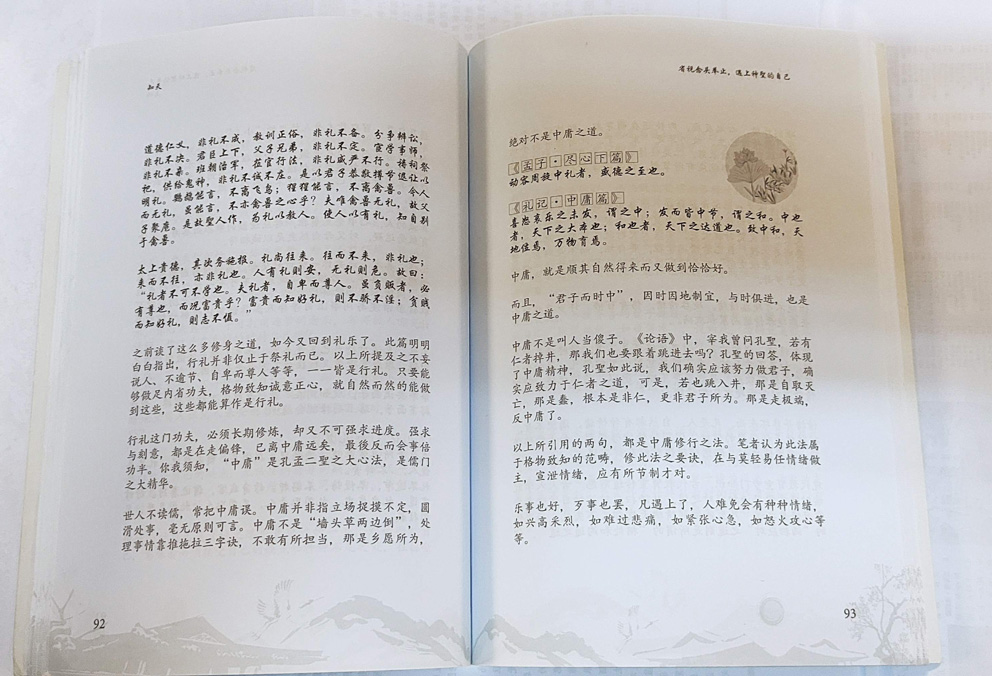 知天
道德仁义，非礼不成，教训正俗，非礼不备。分争辩讼，
非礼不决。君臣上下，父子兄弟，非礼不定。宦学事师，
非礼不亲。班朝治军，莅官行法，非礼威严不行。祷祠祭
祀，供给鬼神，非礼不诚不庄。是以君子恭敬撙节退让以
明礼。鹦鹉能言，不离飞鸟；猩猩能言，不离禽兽。今人
而无礼，虽能言，不亦禽兽之心乎？夫唯禽兽无礼，故父
子聚麀。是故聖人作，为礼以教人。使人以有礼，知自别
于禽兽。
太上貴德，其次务施报。礼尚往来。往而不来，非礼也；
来而不往，亦非礼也。人有礼则安，无礼则危。故曰：
“礼者不可不学也。夫礼者，自卑而尊人。虽负贩者，必
有尊也，而况富贵乎？富贵而知好礼，则不骄不淫；贫贱
而知好礼，则志不慑。”
之前谈了这么多修身之道，如今又回到礼乐了。此篇明明
白白指出，行礼并非仅止于祭礼而已。以上所提及之不妄
说人、不逾节、自卑而尊人等等，一一皆是行礼。只要能
够做足内省功夫，格物致知诚意正心，就自然而然的能做
到这些，这些都能算作是行礼。
行礼这门功夫，必须长期修炼，却又不可强求进度。强求
与刻意，都是在走偏锋，已离中庸远矣，最後反而会事倍
功半。你我须知，“中庸”是孔孟二聖之大心法，是儒门
之大精华。
世人不读儒，常把中庸误。中庸并非指立场捉摸不定，圆
滑处事，毫无原则可言。中庸不是“墙头草两边倒”，处
理事情靠推拖拉三字诀，不敢有所担当，那是乡愿所为，
92
省视念头举止，遇上神聖的自己
绝对不是中庸之道。
《孟子·尽心下篇》
动容周旋中礼者，盛德之至也。
《礼记·中庸篇》
喜怒哀乐之未发，谓之中；发而皆中节，谓之和。中也
者，天下之大本也；和也者，天下之达道也。致中和，天
地位焉，万物育焉。
中庸，就是顺其自然得来而又做到恰恰好。
而且，“君子而时中”，因时因地制宜，与时俱进，也是
中庸之道。
中庸不是叫人当傻子。《论语》中，宰我曾问孔聖，若有
仁者掉井，那我们也要跟着跳进去吗？孔聖的回答，体现
了中庸精神，孔聖如此说，我们确实应该努力做君子，确
实应致力于仁者之道，可是，若也跳入井，那是自取灭
亡，那是蠢，根本是非仁，更非君子所为。那是走极端，
反中庸了。
以上所引用的两句，都是中庸修行之法。笔者认为此法属
于格物致知的范畴，修此法之要诀，在与莫轻易任情绪做
主，宣泄情绪，应有所节制才对。
乐事也好，歹事也罢，凡遇上了，人难免会有种种情绪，
如兴高采烈，如难过悲痛，如紧张心急，如怒火攻心等
等。
93